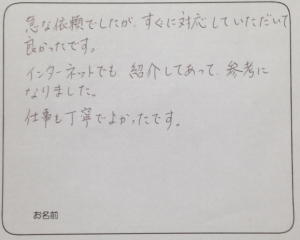 急な依頼でしたが、すぐに対応していただいて
良かったです。
インターネットでも、紹介してあって、参考に
なりました。
仕事も丁寧でよかったです。
お名前